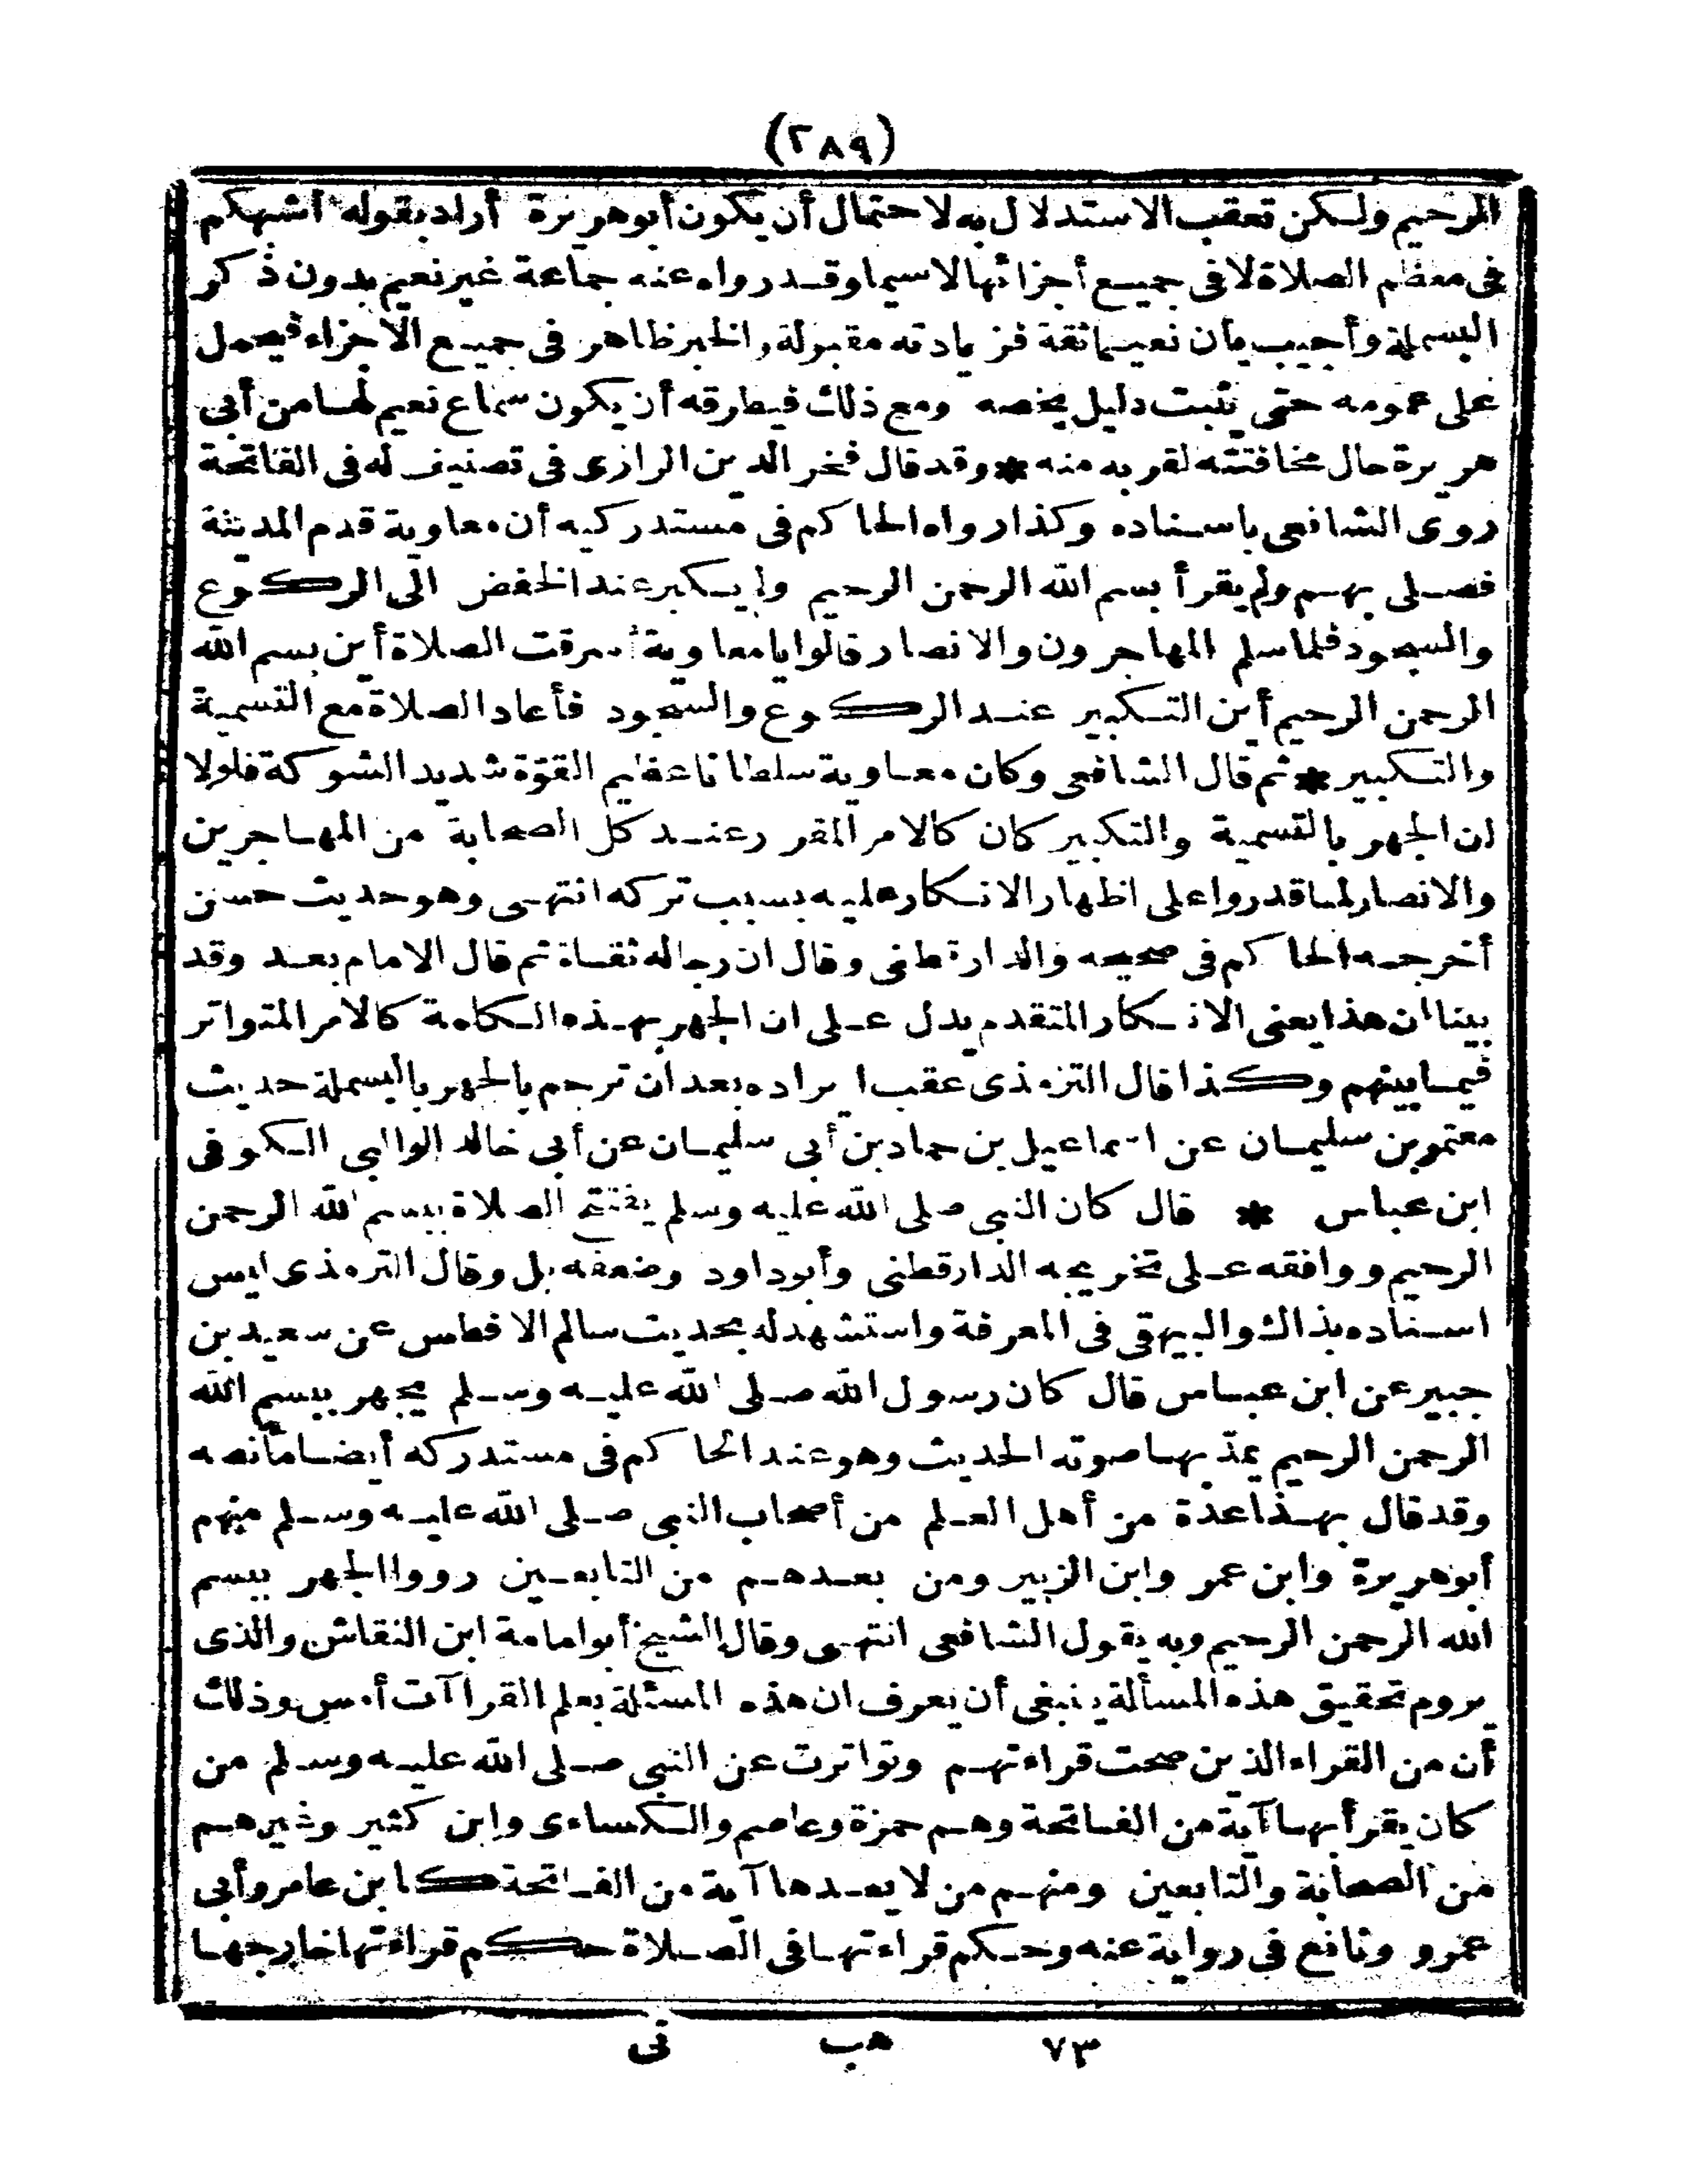 (٢٨٩)
الرحيم ولكن تعقب الاستدلال به لاحتمال أن يكون أبو هريرة أراد بقوله أشبهكم
فى معظم الصلاة لا فى جميع أجزائها لاسيما وقد رواه عنه جماعة غير نعيم بدون ذكر
البسملة وأجيب بأن نعيما ثقة فزيادته مقبولة والخبر ظاهر فى جميع الاجزاء فيحمل
على عمومه حتى يثبت دليل يخصه ومع ذلك فيطرقه أن يكون سماع نعيم لها من أبى
هريرة حال مخافتته لقربه منه * وقد قال فخر الدين الرازى فى تصنيف له فى الفاتحة
روى الشافعى باسناده وكذا رواه الحاكم فى مستدركيه أن معاوية قدم المدينة
فصلى بهم ولم يقرأ بسم الله الرحمن الرحيم ولم يكبر عند الخفض الى الركوع
والسجود فلما سلم المهاجرون والانصار قالوا يا معاوية أسرقت الصلاة أين بسم الله
الرحمن الرحيم أين التكبير عند الركوع والسجود فأعاد الصلاة مع التسمية
والتكبير * ثم قال الشافعى وكان معاوية سلطانا عظيم القوّة شديد الشوكة فلولا
ان الجهر بالتسمية والتكبير كان كالامر المقرر عند كل الصحابة من المهاجرين
والانصار لما قدروا على اظهار الانكار عليه بسبب تركه انتهى وهو حديث حسن
أخرجه الحاكم فى صحيحه والدارقطنى وقال ان رجاله ثقاة ثم قال الامام بعد وقد
بينا ان هذا يعنى الانكار المتقدم يدل على ان الجهر بهذه الكلمة كالامر المتواتر
فيما بينهم وكذا قال الترمذى عقب ايراده بعد أن ترجم بالجهر بالبسملة حديث
معتمر بن سليمان عن اسماعيل بن حماد بن أبى سليمان عن أبى خالد الوالبى الكوفى
ابن عباس * قال كان النبى صلى الله عليه وسلم يفتتح الصلاة ببسم الله الرحمن
الرحيم ووافقه على تخريجه الدارقطنى وأبو داود وضعفه بل وقال الترمذى ليس
اسناده بذاك والبيهقى فى المعرفة واستشهد له بحديث سالم الافطس عن سعيد بن
جبير عن ابن عباس قال كان رسول الله صلى الله عليه وسلم يجهر ببسم الله
الرحمن الرحيم يمدّ بها صوته الحديث وهو عند الحاكم فى مستدركه أيضا مانصه
وقد قال بهذا عدّة من أهل العلم من أصحاب النبى صلى الله عليه وسلم منهم
أبو هريرة وابن عمر وابن الزبير ومن بعدهم من التابعين رووا الجهر ببسم
الله الرحمن الرحيم وبه يقول الشافعى انتهى وقال الشيخ أبو امامة ابن النقاش والذى
يروم تحقيق هذه المسألة ينبغى أن يعرف ان هذه المسئلة بعلم القراآت أمس وذلك
أن من القراء الذين صحت قراءتهم وتواترت عن النبى صلى الله عليه وسلم من
كان يقرأ بها آية من الفاتحة وهم حمزة وعاصم والكساءى وابن كثير وغيرهم
من الصحابة والتابعين ومنهم من لا يعدها آية من الفاتحة كابن عامر وأبى
عمرو ونافع فى رواية عنه وحكم قراءتها فى الصلاة حكم قراءتها خارجها
٧٣ هب نى